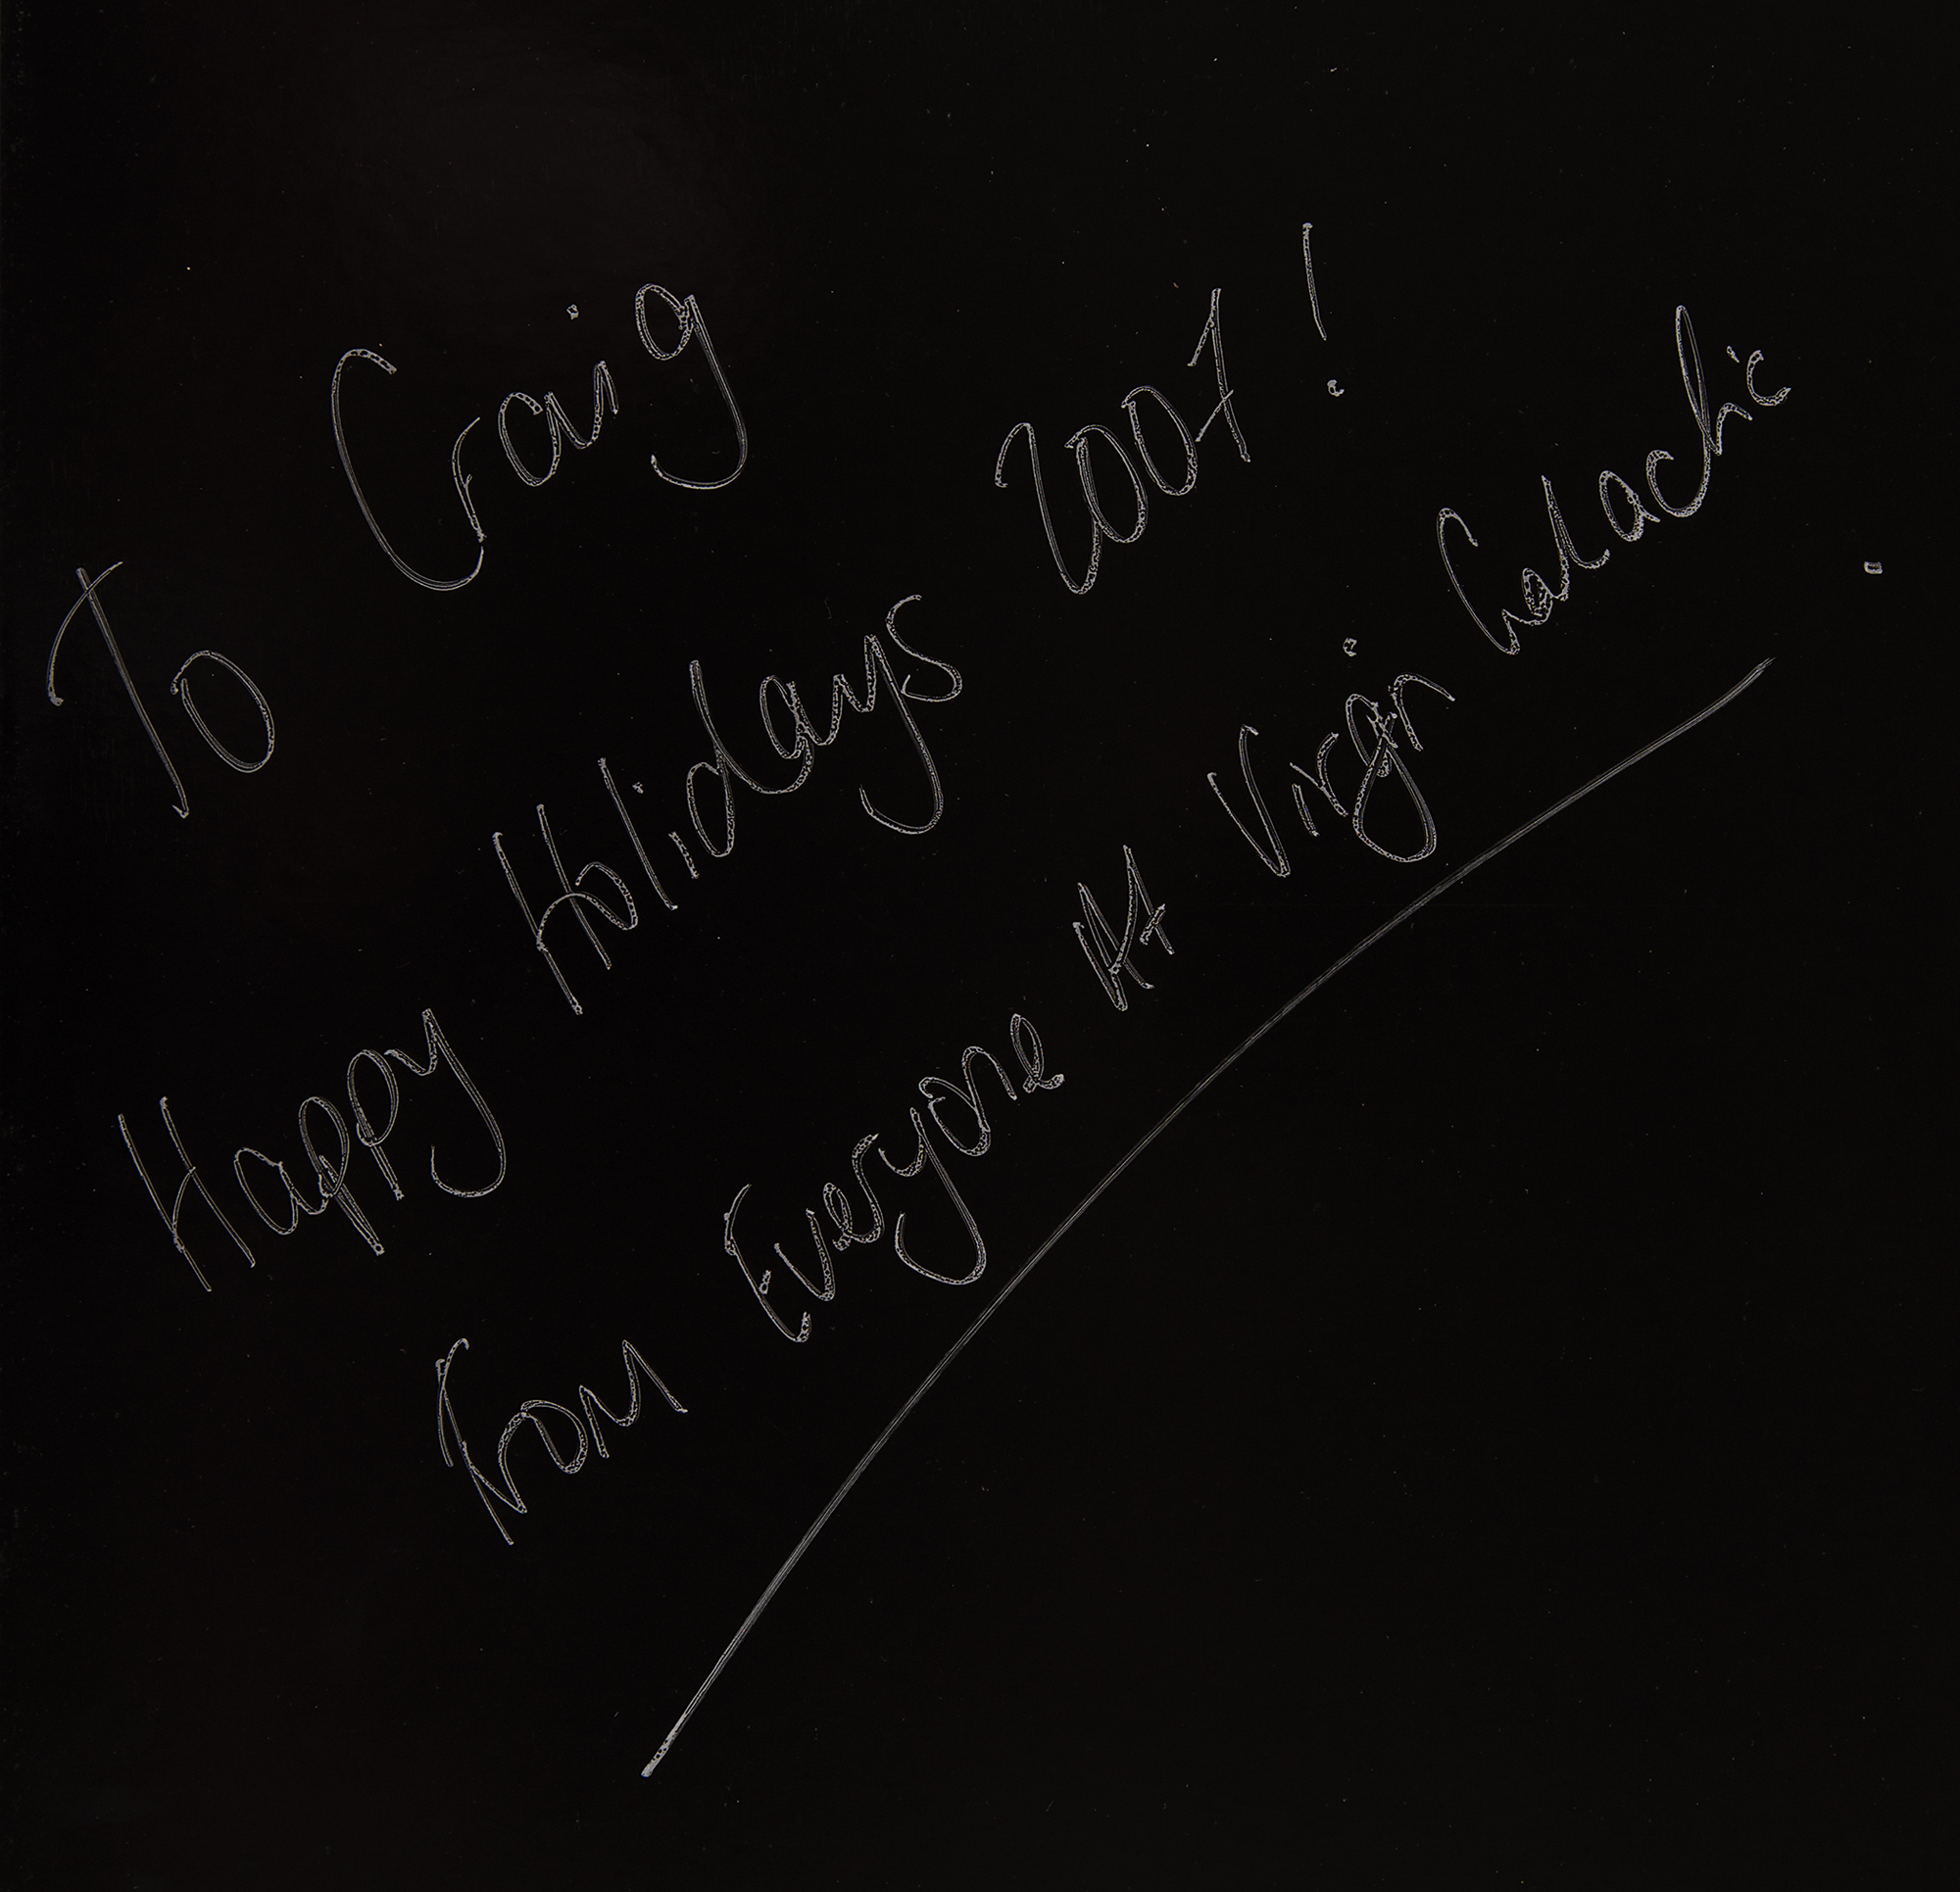 To Craig
Happy Holidays 2007!
From Everyone At Virgin Galactic